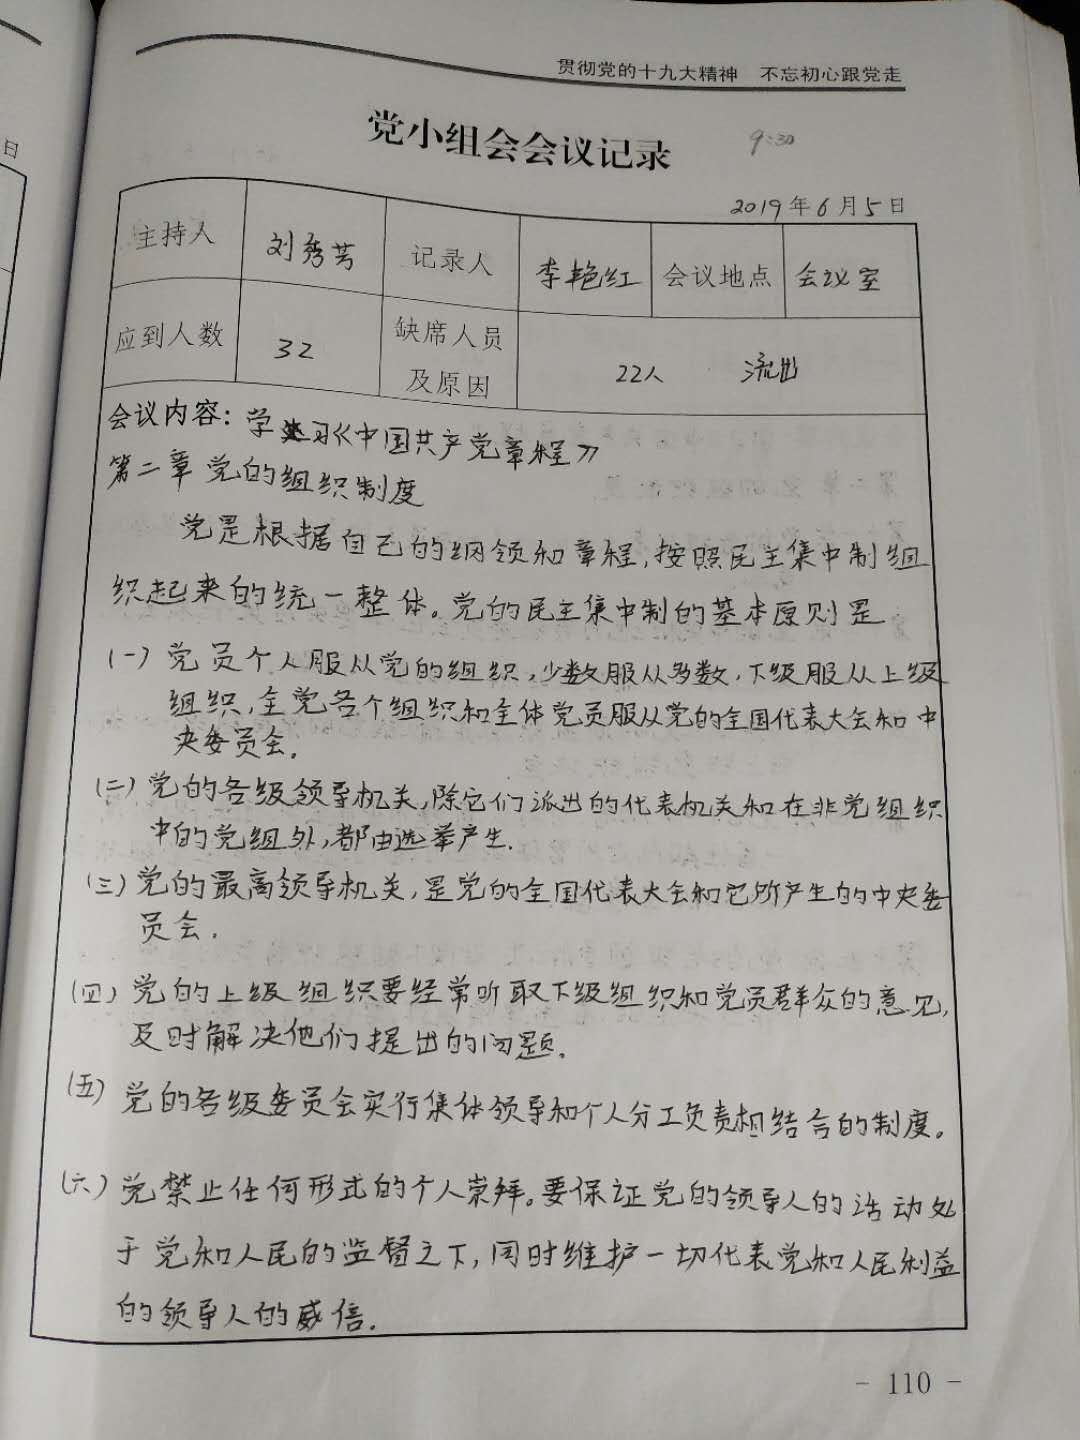 日
贯彻党的十九大精神 不忘初心跟党走
党小组会会议记录 9:30
2019年6月5日
主持人 刘秀芳 记录人 李艳红 会议地点 会议室
应到人数 32 缺席人员及原因 22人 流出
会议内容：学习《中国共产党章程》
第二章 党的组织制度
党是根据自己的纲领和章程,按照民主集中制组
织起来的统一整体。党的民主集中制的基本原则是
(一) 党员个人服从党的组织,少数服从多数,下级服从上级
组织,全党各个组织和全体党员服从党的全国代表大会和中
央委员会.
(二) 党的各级领导机关,除它们派出的代表机关和在非党组织
中的党组外,都由选举产生.
(三) 党的最高领导机关,是党的全国代表大会和它所产生的中央委
员会.
(四) 党的上级组织要经常听取下级组织和党员群众的意见,
及时解决他们提出的问题.
(五) 党的各级委员会实行集体领导和个人分工负责相结合的制度。
(六) 党禁止任何形式的个人崇拜。要保证党的领导人的活动处
于党和人民的监督之下,同时维护一切代表党和人民利益
的领导人的威信.
- 110 -